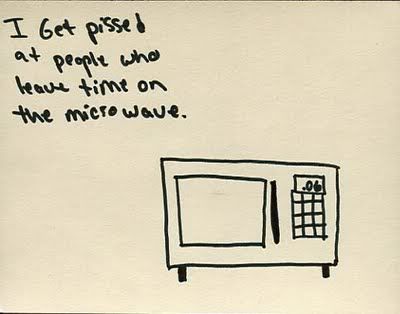 I Get pissed
at people who
leave time on
the microwave.
.06